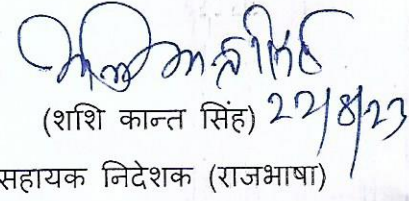 (शशि कान्त सिंह) 22/8/23
सहायक निदेशक (राजभाषा)